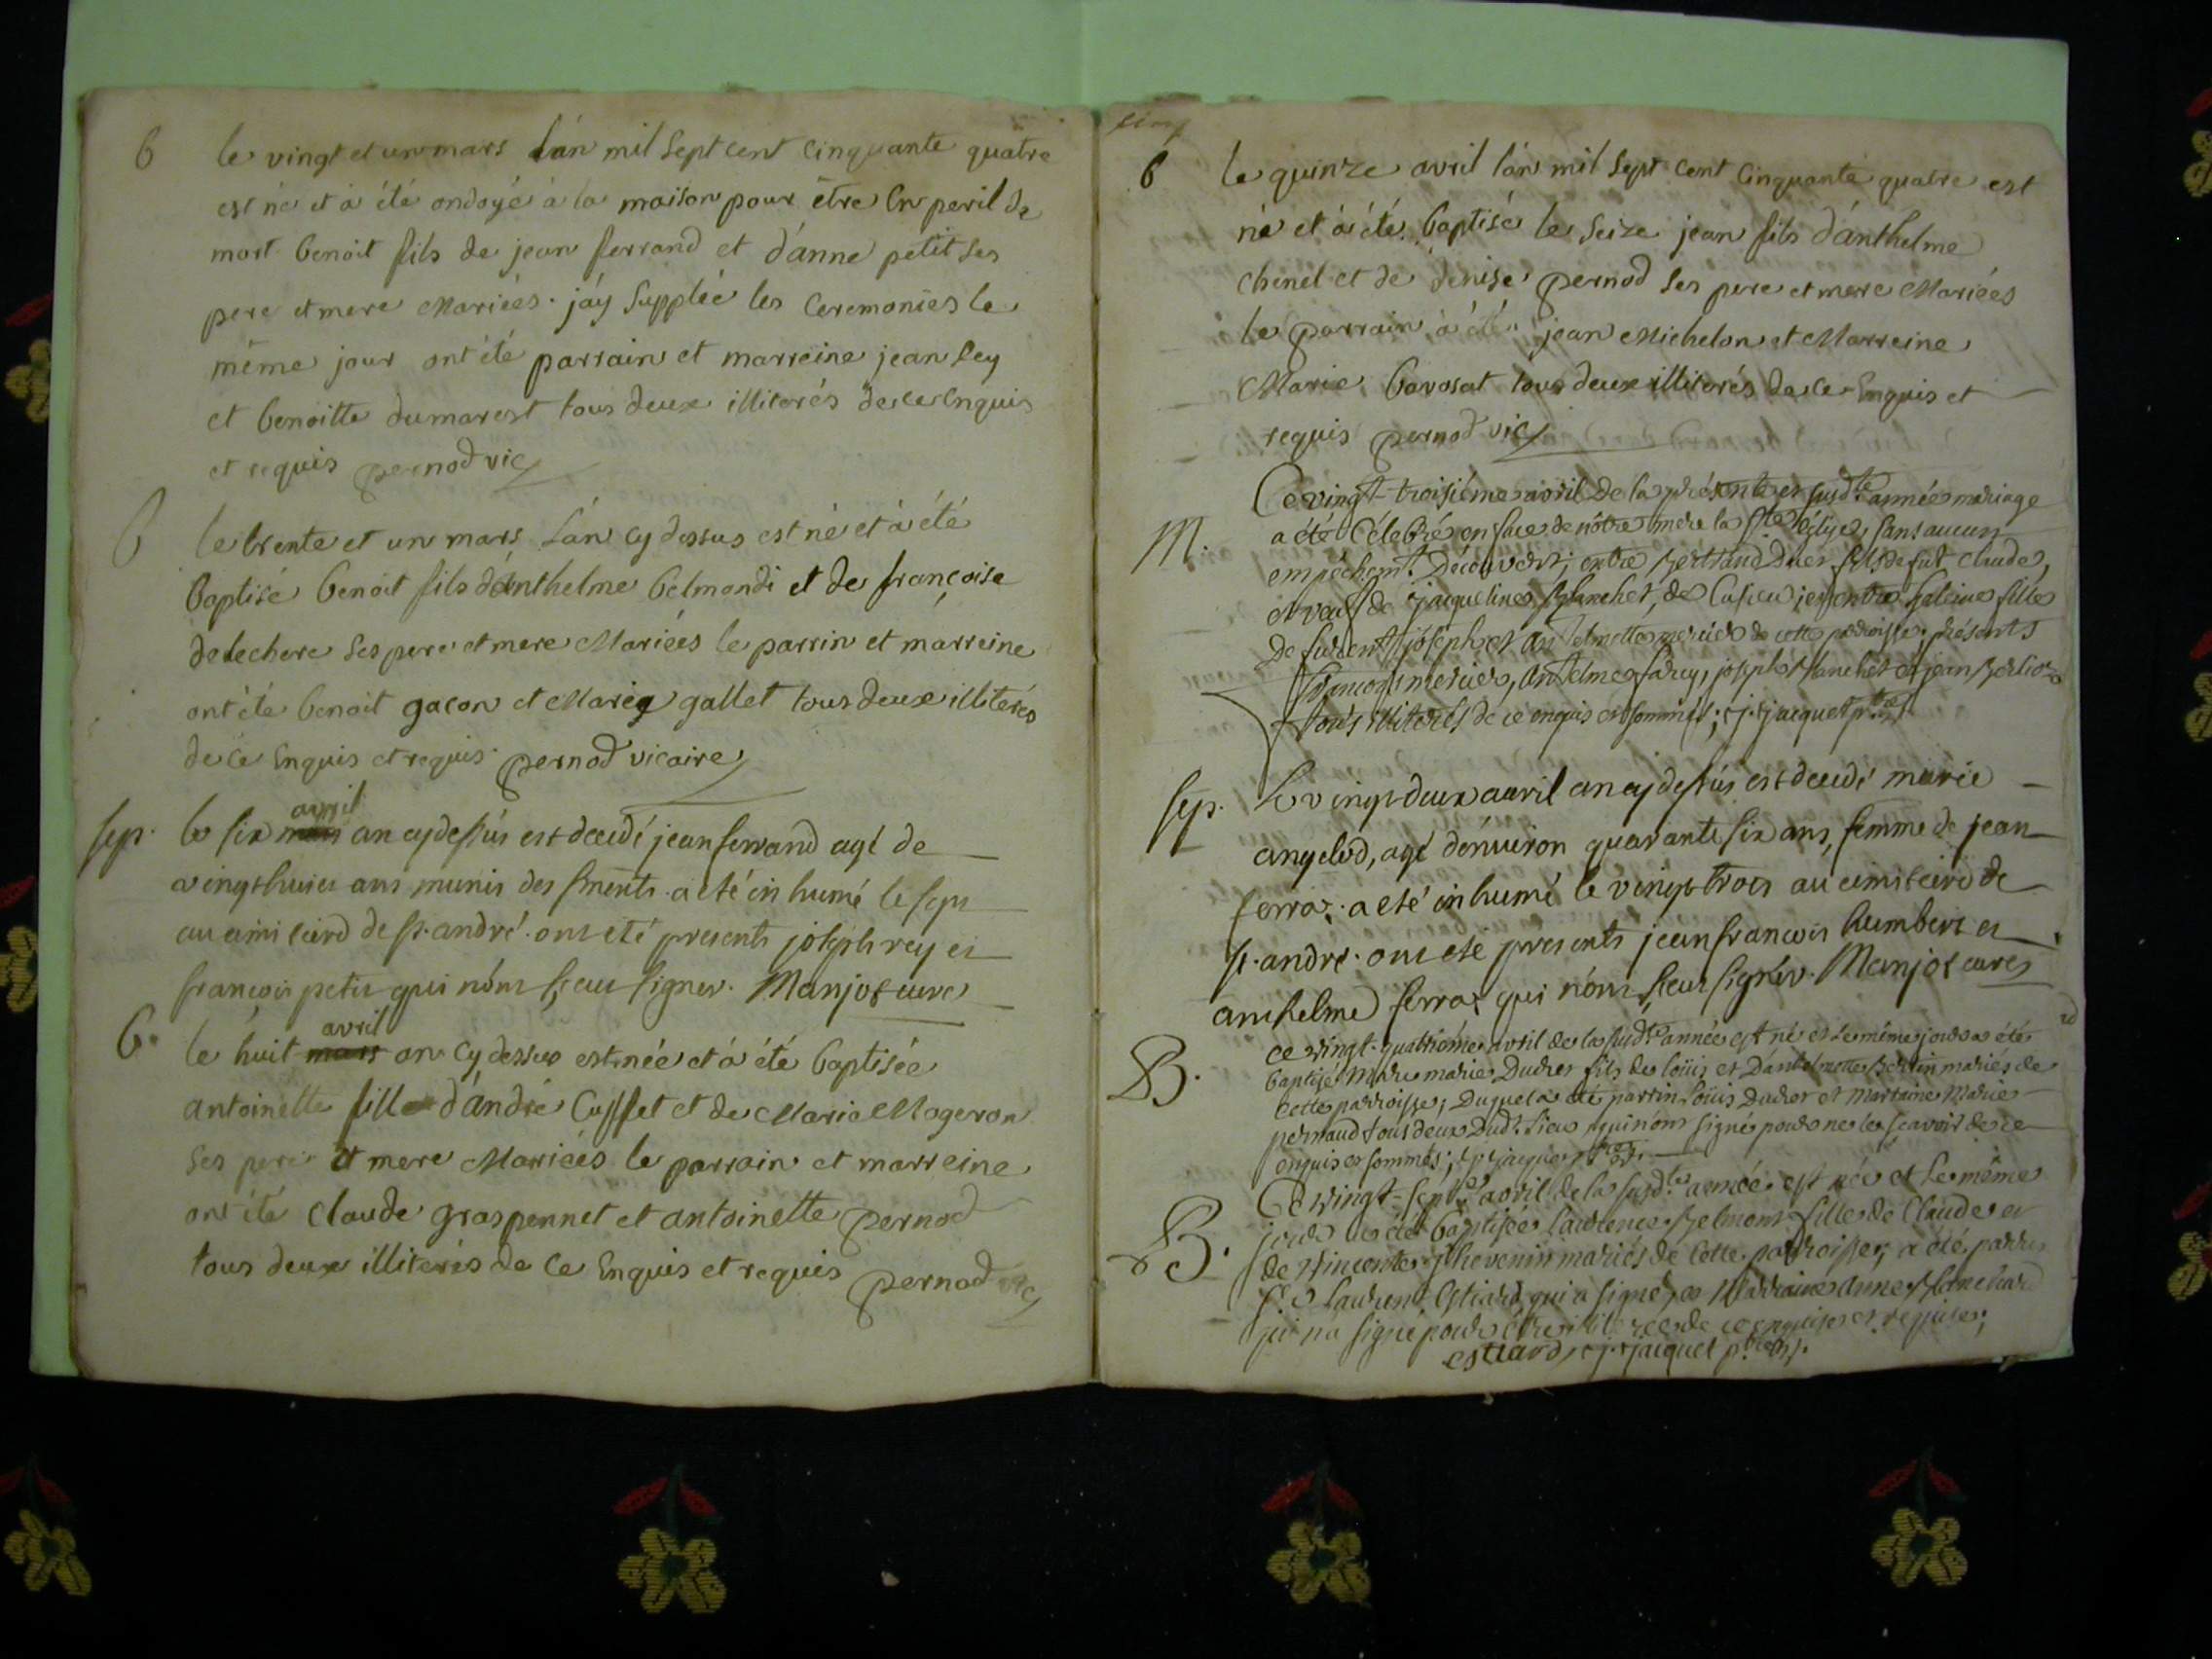 b
le vingt et un mars lán mil sept cent cinquante quatre
est né et à été ondoyé à la maison pour être en peril de
mort benoit fils de jean ferrand et d'anne petit ses
pere et mere Mariées. j'ay supplée les ceremonies le
même jour ont été parrain et marreine jean
et benoitte dumarest tous deux illiterés de ce enquis
et requis pernod vic
b
le trente et un mars lán cy dessus est né et à été
baptisé benoit fils d'anthelme belmondi et de françoise
delechere ses pere et mere Mariées le parrin et marreine
ont été benoit gacon et Marie gallet tous deux illiterés
de ce enquis et requis pernod vicaire
avril
sep. le six mars an cy dessus est decedé jean ferrand agé de
vingt huict ans munis des sments. a eté in humé le sept
au cimitierd de st. andré. ont eté presents joseph rey et
françois petit qui nónt sceu signer. Manjot curé
avril
b. le huit mars an cy dessus est née et à été baptisée
antoinette fille d'andré Cusset et de Marie Mageron
ses pere et mere Mariées le parrain et marreine
ont été claude graspennet et antoinette pernod
tous deux illiterés de ce enquis et requis pernod vic
b
le quinze avril lán mil sept cent cinquante quatre est
né et à été baptisé le seize jean fils d'anthelme
chenel et de denise pernod ses pere et mere Mariées
le parrain à été jean Michelon et Marreine
Marie bavosat tous deux illiterés de ce enquis et
requis pernod vic
Ce vingt-troisiéme avril de la présente et susd.te année mariage
M. a été Célébré en face de nôtre mere la ste église, sans aucun
empêchem.t Découvert; entre fils de fut claude,
et veuf de jaqueline Blanchet, de
de joseph et de cette parroisse; présents
françois mercier, Antelme joseph Blanchet et jean
tous illiterés de ce enquis et sommés; j. jacquet
sep. Le vingt deux avril an cy dessus est decedé marie
angelod, agé dénuiron quarante six ans, femme de jean
ferrax. a eté in humé le vingt trois au cimiteire de
st. andre. ont ete presents jean francois humbert et
anthelme ferrax qui nónt sceu signér. Manjot cure
B. ce vingt-quatriéme avril de la susd.te année est né et le même jour a été
baptisé marie fils de loüis et mariés de
cette parroisse; Duquel a été parrin loüis et Martaine Marie
pernaud tous deux Dud. lieu qui nónt signé pour ne le sçavoir de ce
enquis et sommés; j. jacquet
B. Ce vingt-sept avril de la susd.te année est née et le même
jour a été baptisée laurence Belmont fille de Claude et
de vincente thevenin mariés de cette parroisse; a été parrin
laurent Estiard qui a signé, et Marraine Anne Blanchard
qui na signé pour être de ce enquise et requise;
estiard, j. jacquet